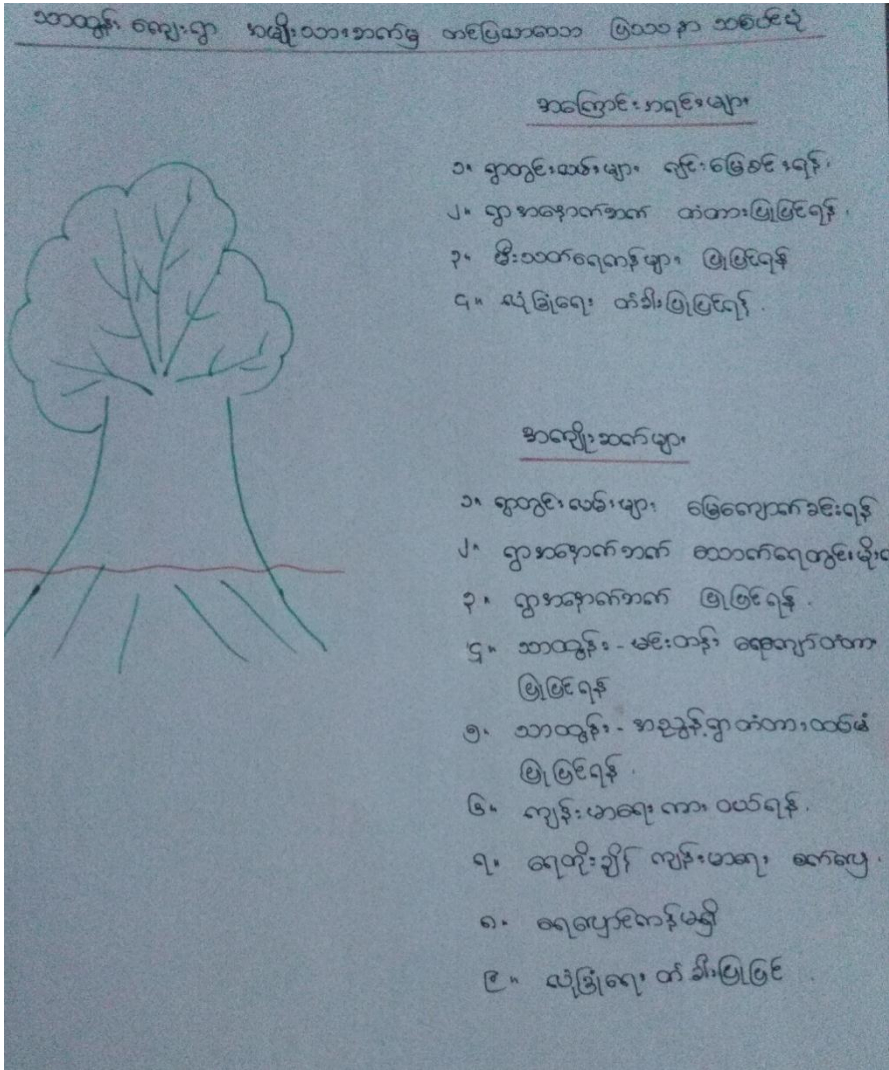 သာထွန်း ကျေးရွာ အမျိုးသားဘက်မှ တင်ပြသော ပြဿနာ သစ်ပင်ပုံ
အကြောင်းအရင်းများ
၁။ ရွာတွင်းလမ်းများ မြေခင်းရန်၊
၂။ ရွာအနောက်ဘက် တံတားပြုပြင်ရန်၊
၃။ မီးသတ်ရေကန်များ ပြုပြင်ရန်
၄။ လုံခြုံရေး တံခါးပြုပြင်ရန်.
အကျိုးဆက်များ
၁။ ရွာတွင်းလမ်းများ မြေကျောက်ခင်းရန်
၂။ ရွာအနောက်ဘက် သောက်ရေတွင်း
၃။ ရွာအနောက်ဘက် ပြုပြင်ရန်.
၄။ သာထွန်း - မင်းတန် ရေကျော်တံတား
ပြုပြင်ရန်
၅။ သာထွန်း - ရွာတံတား
ပြုပြင်ရန်.
၆။ ကျန်းမာရေး ကား ဝယ်ရန်.
၇။ ရေတိုးချိန် ကျန်းမာရေး စက်လှေ.
၈။ ရေလှောင်ကန်မရှိ
၉။ လုံခြုံရေး တံခါးပြုပြင်.